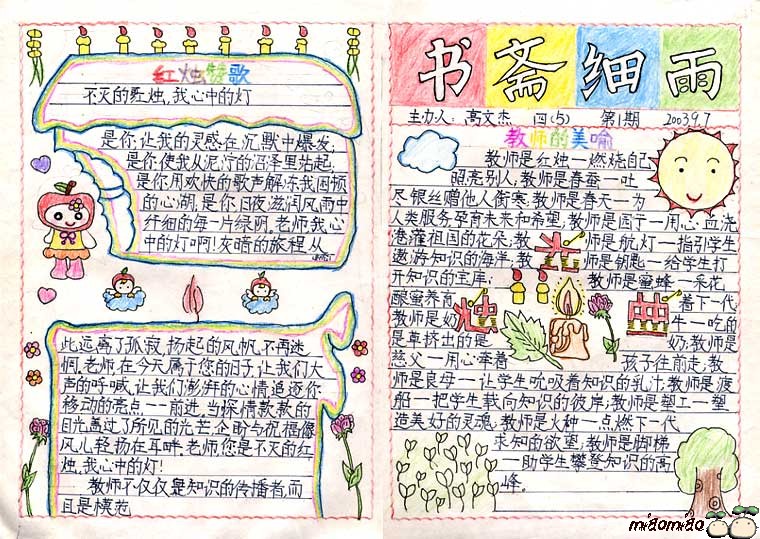 红烛赞歌
不灭的红烛,我心中的灯
是你,让我的灵感在沉默中爆发;
是你使我从泥泞的沼泽里站起;
是你用欢快的歌声解冻我困顿
的心湖,是你日夜滋润风雨中
纤细的每一片绿阴,老师,我心
中的灯啊!灰暗的旅程,从
此远离了孤寂,扬起的风帆,不再迷
惘,老师,在今天属于您的日子,让我们大
声的呼喊,让我们澎湃的心情追逐你
移动的亮点,一一前进,当深情款款的
目光,盖过了所见的光芒,企盼与祝福像
风儿轻扬在耳畔.老师,您是不灭的红
烛,我心中的灯!
教师不仅仅是知识的传播者,而
且是模范
书斋细雨
主办人:高文杰 四(5) 第1期 2003.9.7
教师的美喻
教师是红烛—燃烧自己
照亮别人;教师是春蚕—吐
尽银丝赠他人御寒;教师是春天—为
人类服务,孕育未来和希望;教师是园丁—用心血浇
灌祖国的花朵;教师是航灯—指引学生
遨游知识的海洋;教师是钥匙—给学生打
开知识的宝库;教师是蜜蜂—采花
酿蜜养育着下一代
教师是奶牛—吃的
是草挤出的是奶;教师是
慈父—用心牵着孩子往前走;教
师是良母—让学生吮吸着知识的乳汁;教师是渡
船—把学生载向知识的彼岸;教师是塑工—塑
造美好的灵魂;教师是火种—点燃下一代
求知的欲望;教师是脚梯
—助学生攀登知识的高
峰。
miaomiao